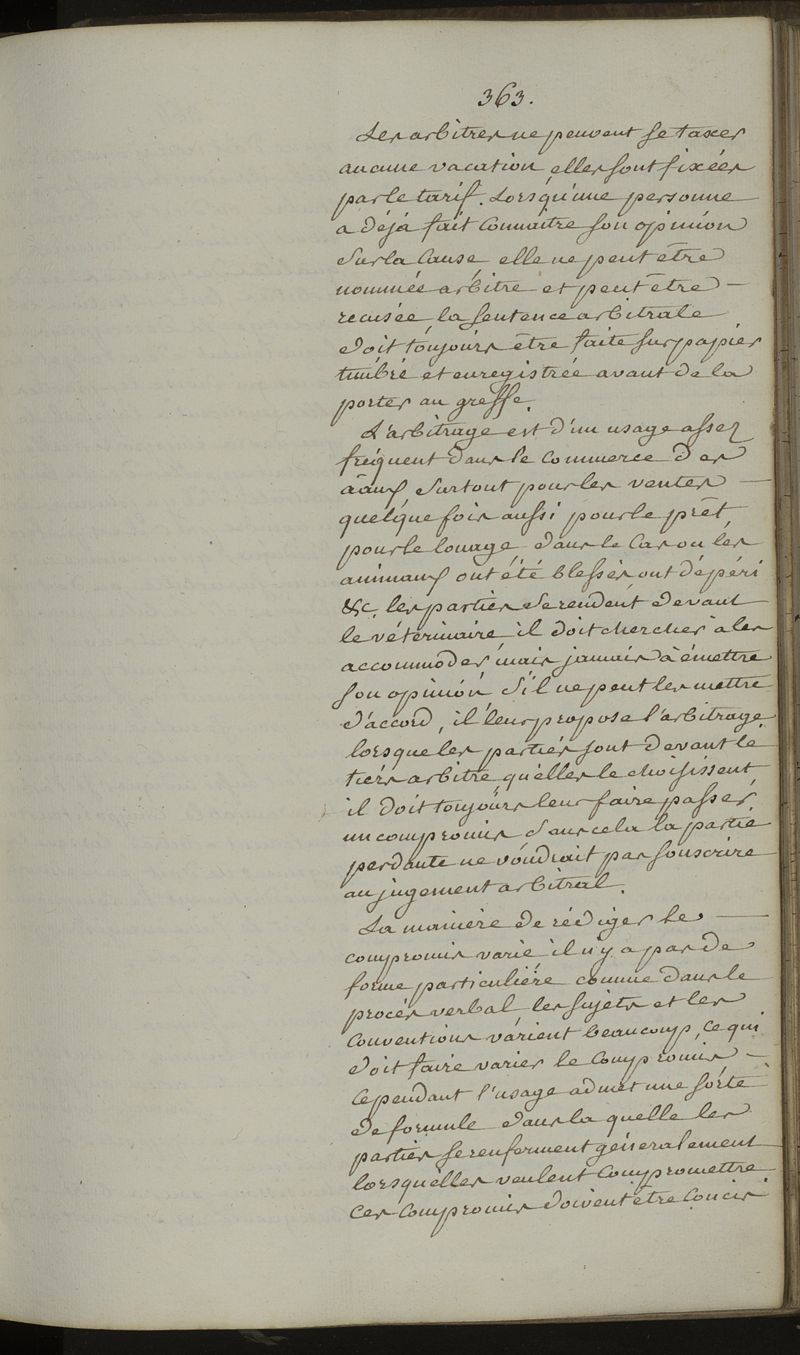 363.
Les arbitres ne peuvent se taxer
aucune vacation, elles sont fixées
par le tarif. Lorsqu'une personne
a déjà fait connaitre son opinion
sur la cause, elle ne peut être
nommée arbitre et peut être —
recusée, la sentence arbitrale
doit toujours être faite sur papier
timbré et enregistrée avant de la
porter au greffe.
L'arbitrage est d'un usage assez
fréquent dans le commerce des
aāux, surtout pour les ventes —
quelque fois aussi pour le prêt,
pour le louage, dans le cas ou les
animaux ont été blessés, ont dépéri
&c, les parties se rendent devant
le véterinaire il doit chercher à les
accommoder mais jamais à émettre
son opinion, s'il ne peut les mettre
d'accord, il leur propose l'arbitrage
lorsque les parties sont devant le
tiers arbitre qu'elles le choisissent,
il doit toujours leur faire passer
un compromis, sans cela la partie
perdante ne voudrait pas souscrire
au jugement arbitral.
La manière de rédiger le —
compromis varie il n'y a pas de
forme particulière comme dans le
procès verbal, les sujets et les
conventions varient beaucoup, ce qui
doit faire varier le compromis, —
Cependant l'usage admet une sorte
de formule dans la quelle les
parties se renferment généralement
lorsqu'elles veulent compromettre
Ces compromis doivent être concis